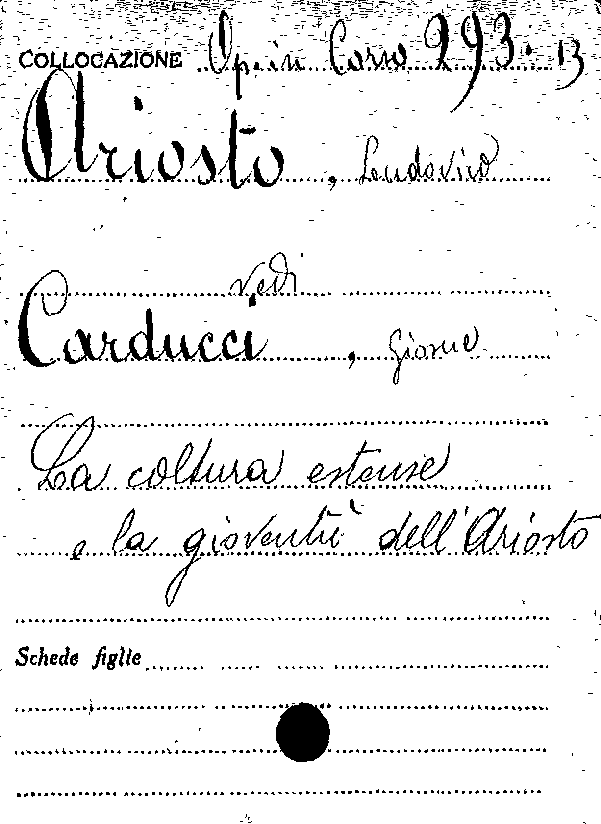 COLLOCAZIONE Op. in Corso 293. 13
Ariosto, Ludovico
vedi
Carducci, Giosue
La coltura estense
e la gioventù dell'Ariosto
Schede figlie